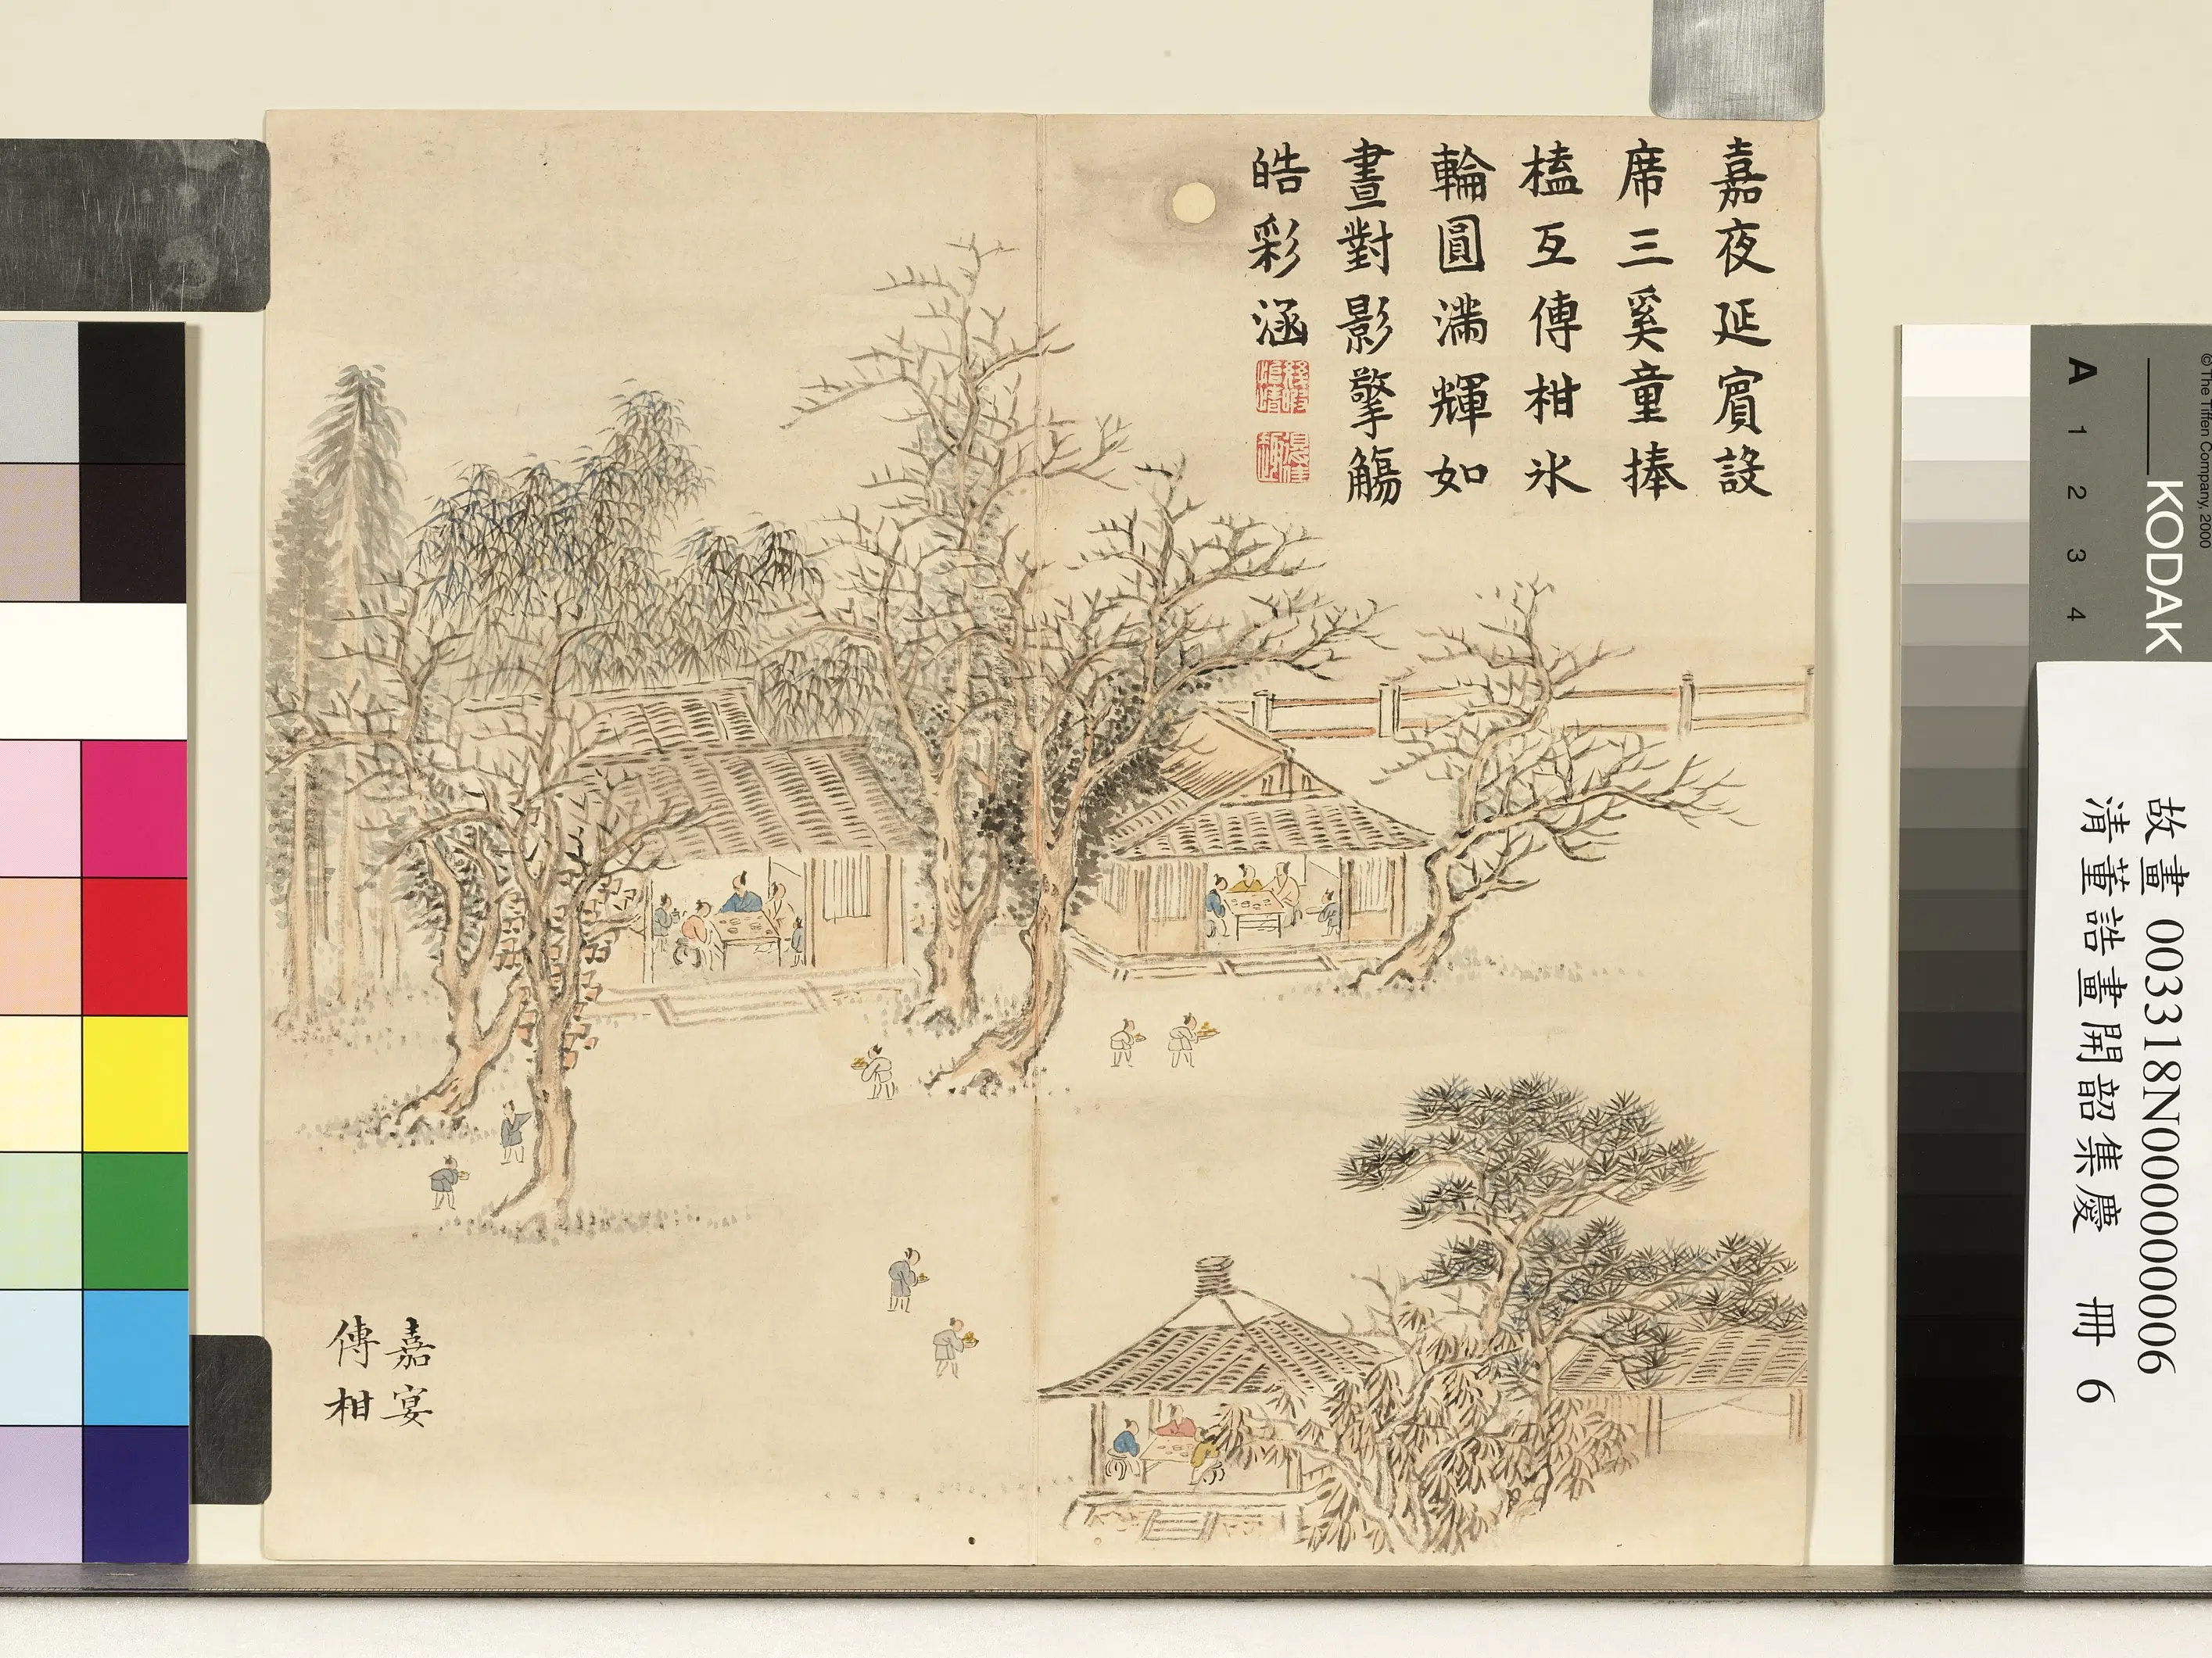 嘉夜延賓設
席三奚童捧
榼互傳柑氷
輪圓滿輝如
晝對影擎觴
皓彩涵
嘉宴
傳柑
故畫 003318N000000006
清董誥畫開韶集慶 冊 6
KODAK
A 1 2 3 4
© The Tiffen Company, 2000